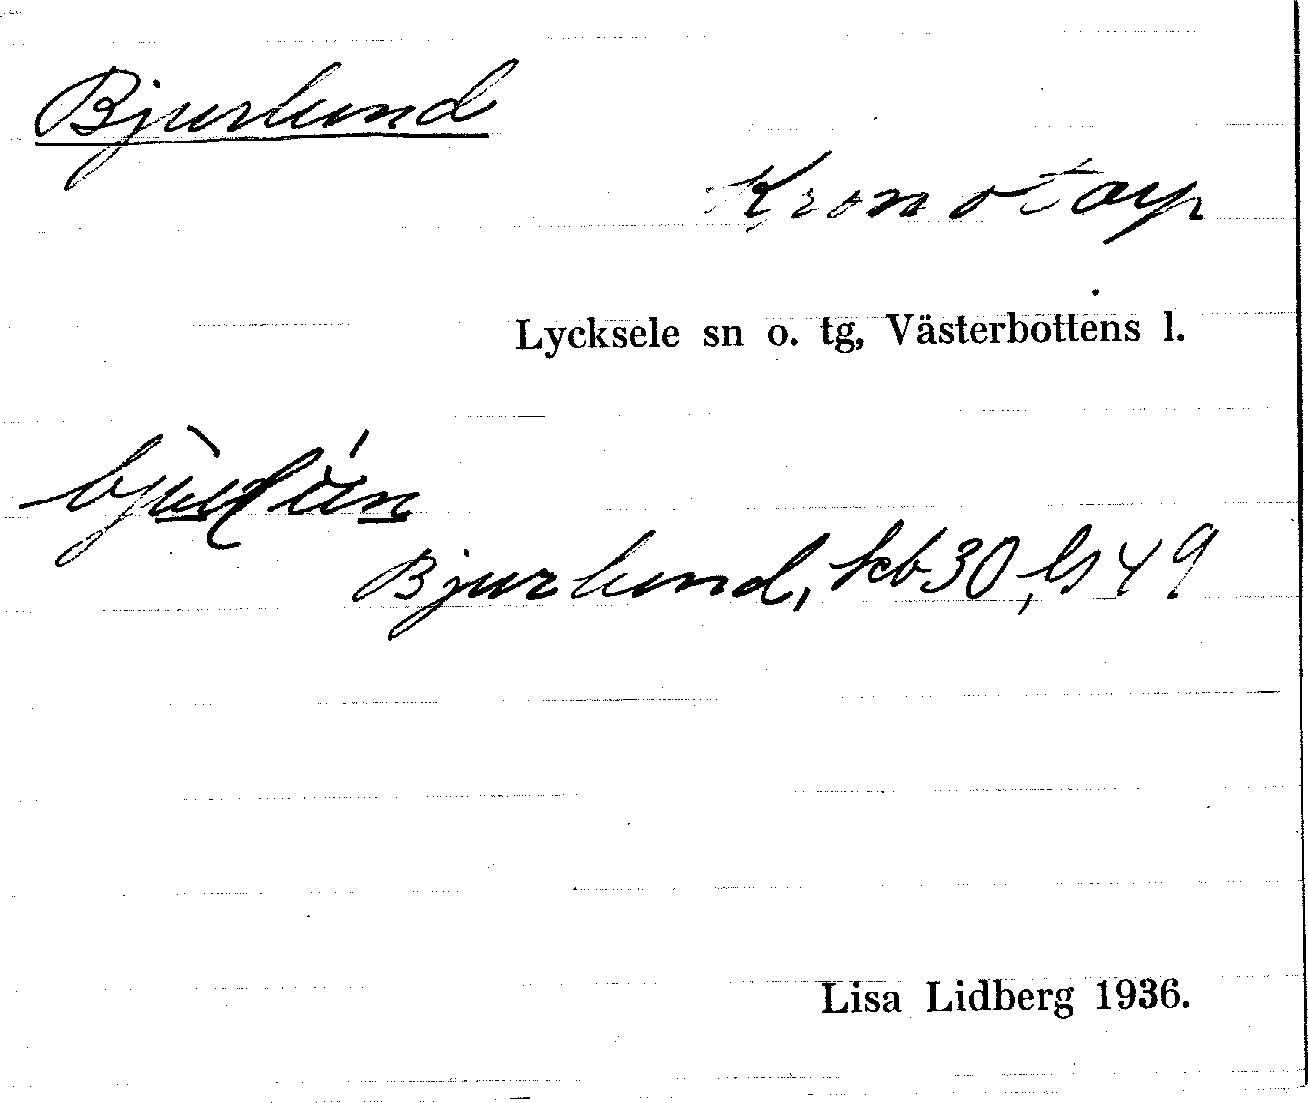 Bjurlund
Kronotorp
Lycksele sn o. tg, Västerbottens l.
Bjurlund, kb 30, ls 49
Lisa Lidberg 1936.